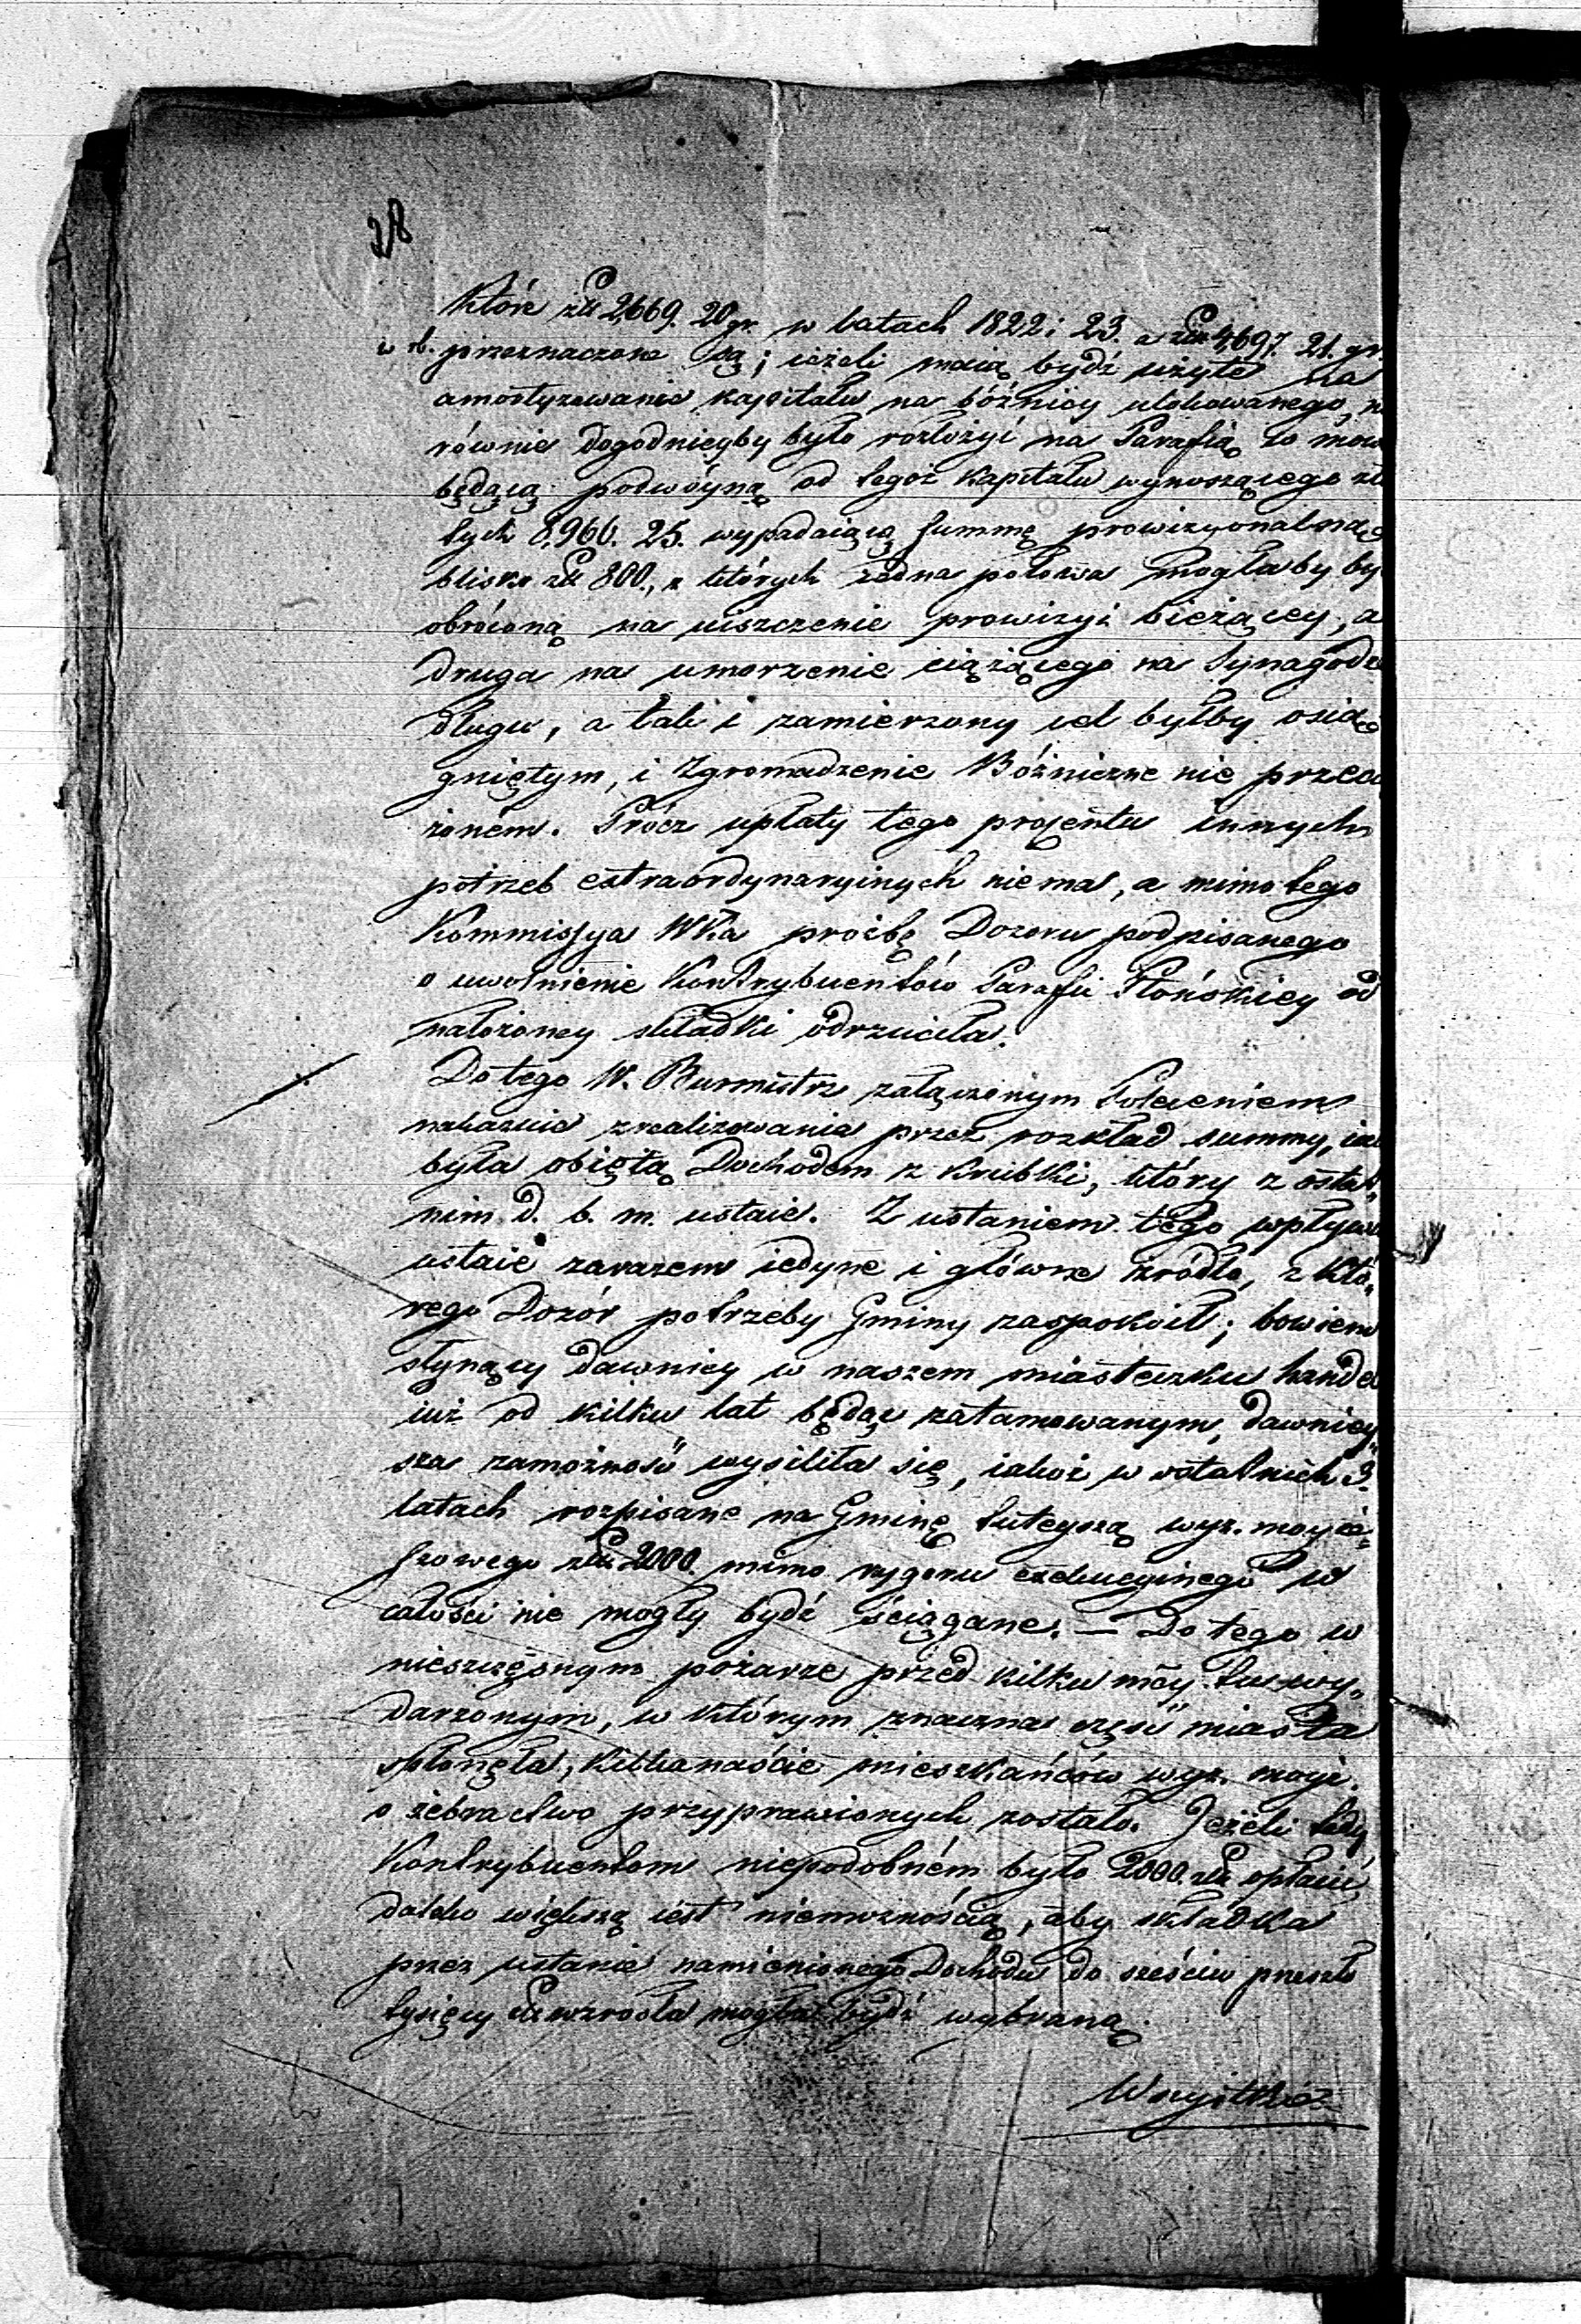 28
Które złł 2,669. 20 gr. w latach 1822 i 23. a złł 4,697. 21. gr.
w rb. przeznaczone są; ieżeli maią bydź użyte na
amortyzowanie kapitału na bóżnicy ulokowanego, n
równie dogodnieyby było rozłożyć na Parafią co
będącą podwóyną od tegoż Kapitału wynoszącego zło
tych 8,960. 25. wypadaiącą summę prowizyonalną
blisko złł 800., z których iedna połowa mogłaby by
obróconą na uiszczenie prowizyi bieżącey, a
druga na umorzenie ciążącego na Synagodze
długu, a tak i zamierzony cel byłby osią
gniętym, i Zgromadzenie Bóżniczne nie przecią
żoném. Prócz upłaty tego procentu innych
potrzeb extraordynaryinych niema, a mimo tego
Kommissya WKa prośbę Dozoru podpisanego
o uwolnienie Kontrybuentów Parafii Płońskiey od
nałożoney składki odrzuciła.
Do tego W. Burmistrz załączonym Poleceniem
nakazuie zrealizowania przez rozkład summy, iak
była obiętą Dochodem z krubki, który z ostat„
nim d. b. m. ustaie. Z ustaniem tego wpływu
ustaie zarazem iedyne i główne źródło, z któ„
rego Dozór potrzeby Gminy zaspokoił; bowiem
słynący dawniey w naszem miasteczku handel
iuż od kilku lat będąc zatamowanym, dawniey„
sza zamożność wysiliła się, iakoż w ostatnich 3.
latach rozpisane na Gminę tuteyszą wyz. moyże„
szowego złł 2000. mimo rygoru exekucyinego w
całości nie mogły bydź ściągane. — Do tego w
nieszczęsnym pożarze przed kilku mcy tu wy„
darzonym, w którym znaczna część miasta
spłonęła, kilkanaście mieszkańców wyz. moyż.
o żebractwo przyprawionych zostało. Jeżeli tedy
Kontrybuentom niepodobném było 2000. złł opłacić,
daleko większą iest niemożnością, aby składka
przez ustanie namienionego Dochodu do sześciu przeszło
tysięcy złł wzrosła mogła bydź wybraną.